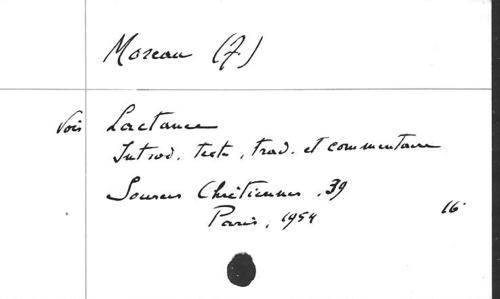 Moreau (J)
Voir Lactance
Introd. texte, trad. et commentaire
Sources Chrétiennes, 39
Paris, 1954
16